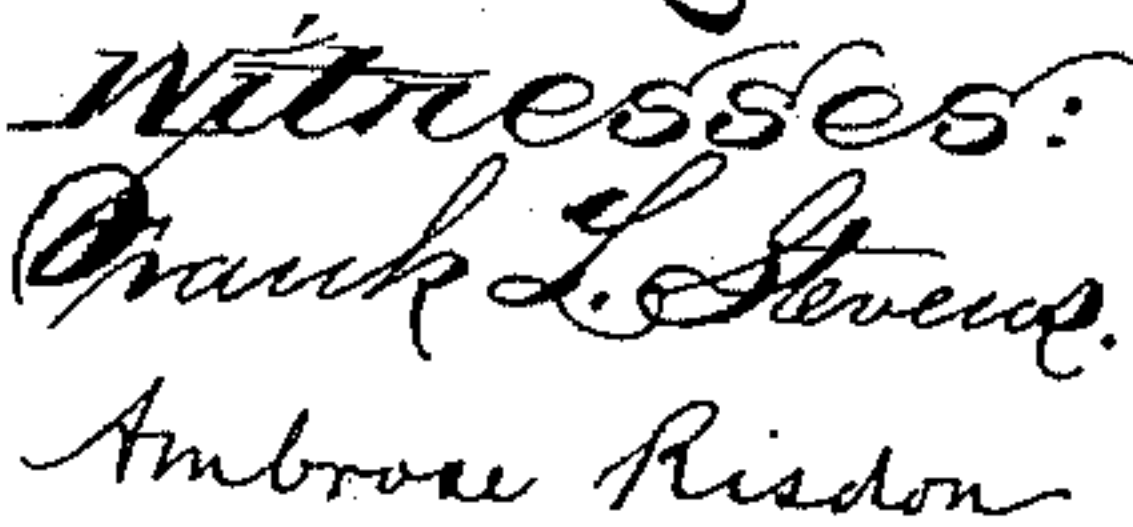 Witnesses:
Frank L. Stevens.
Ambrose Risdon